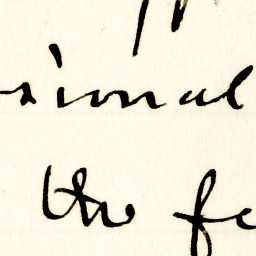 sional
the fe